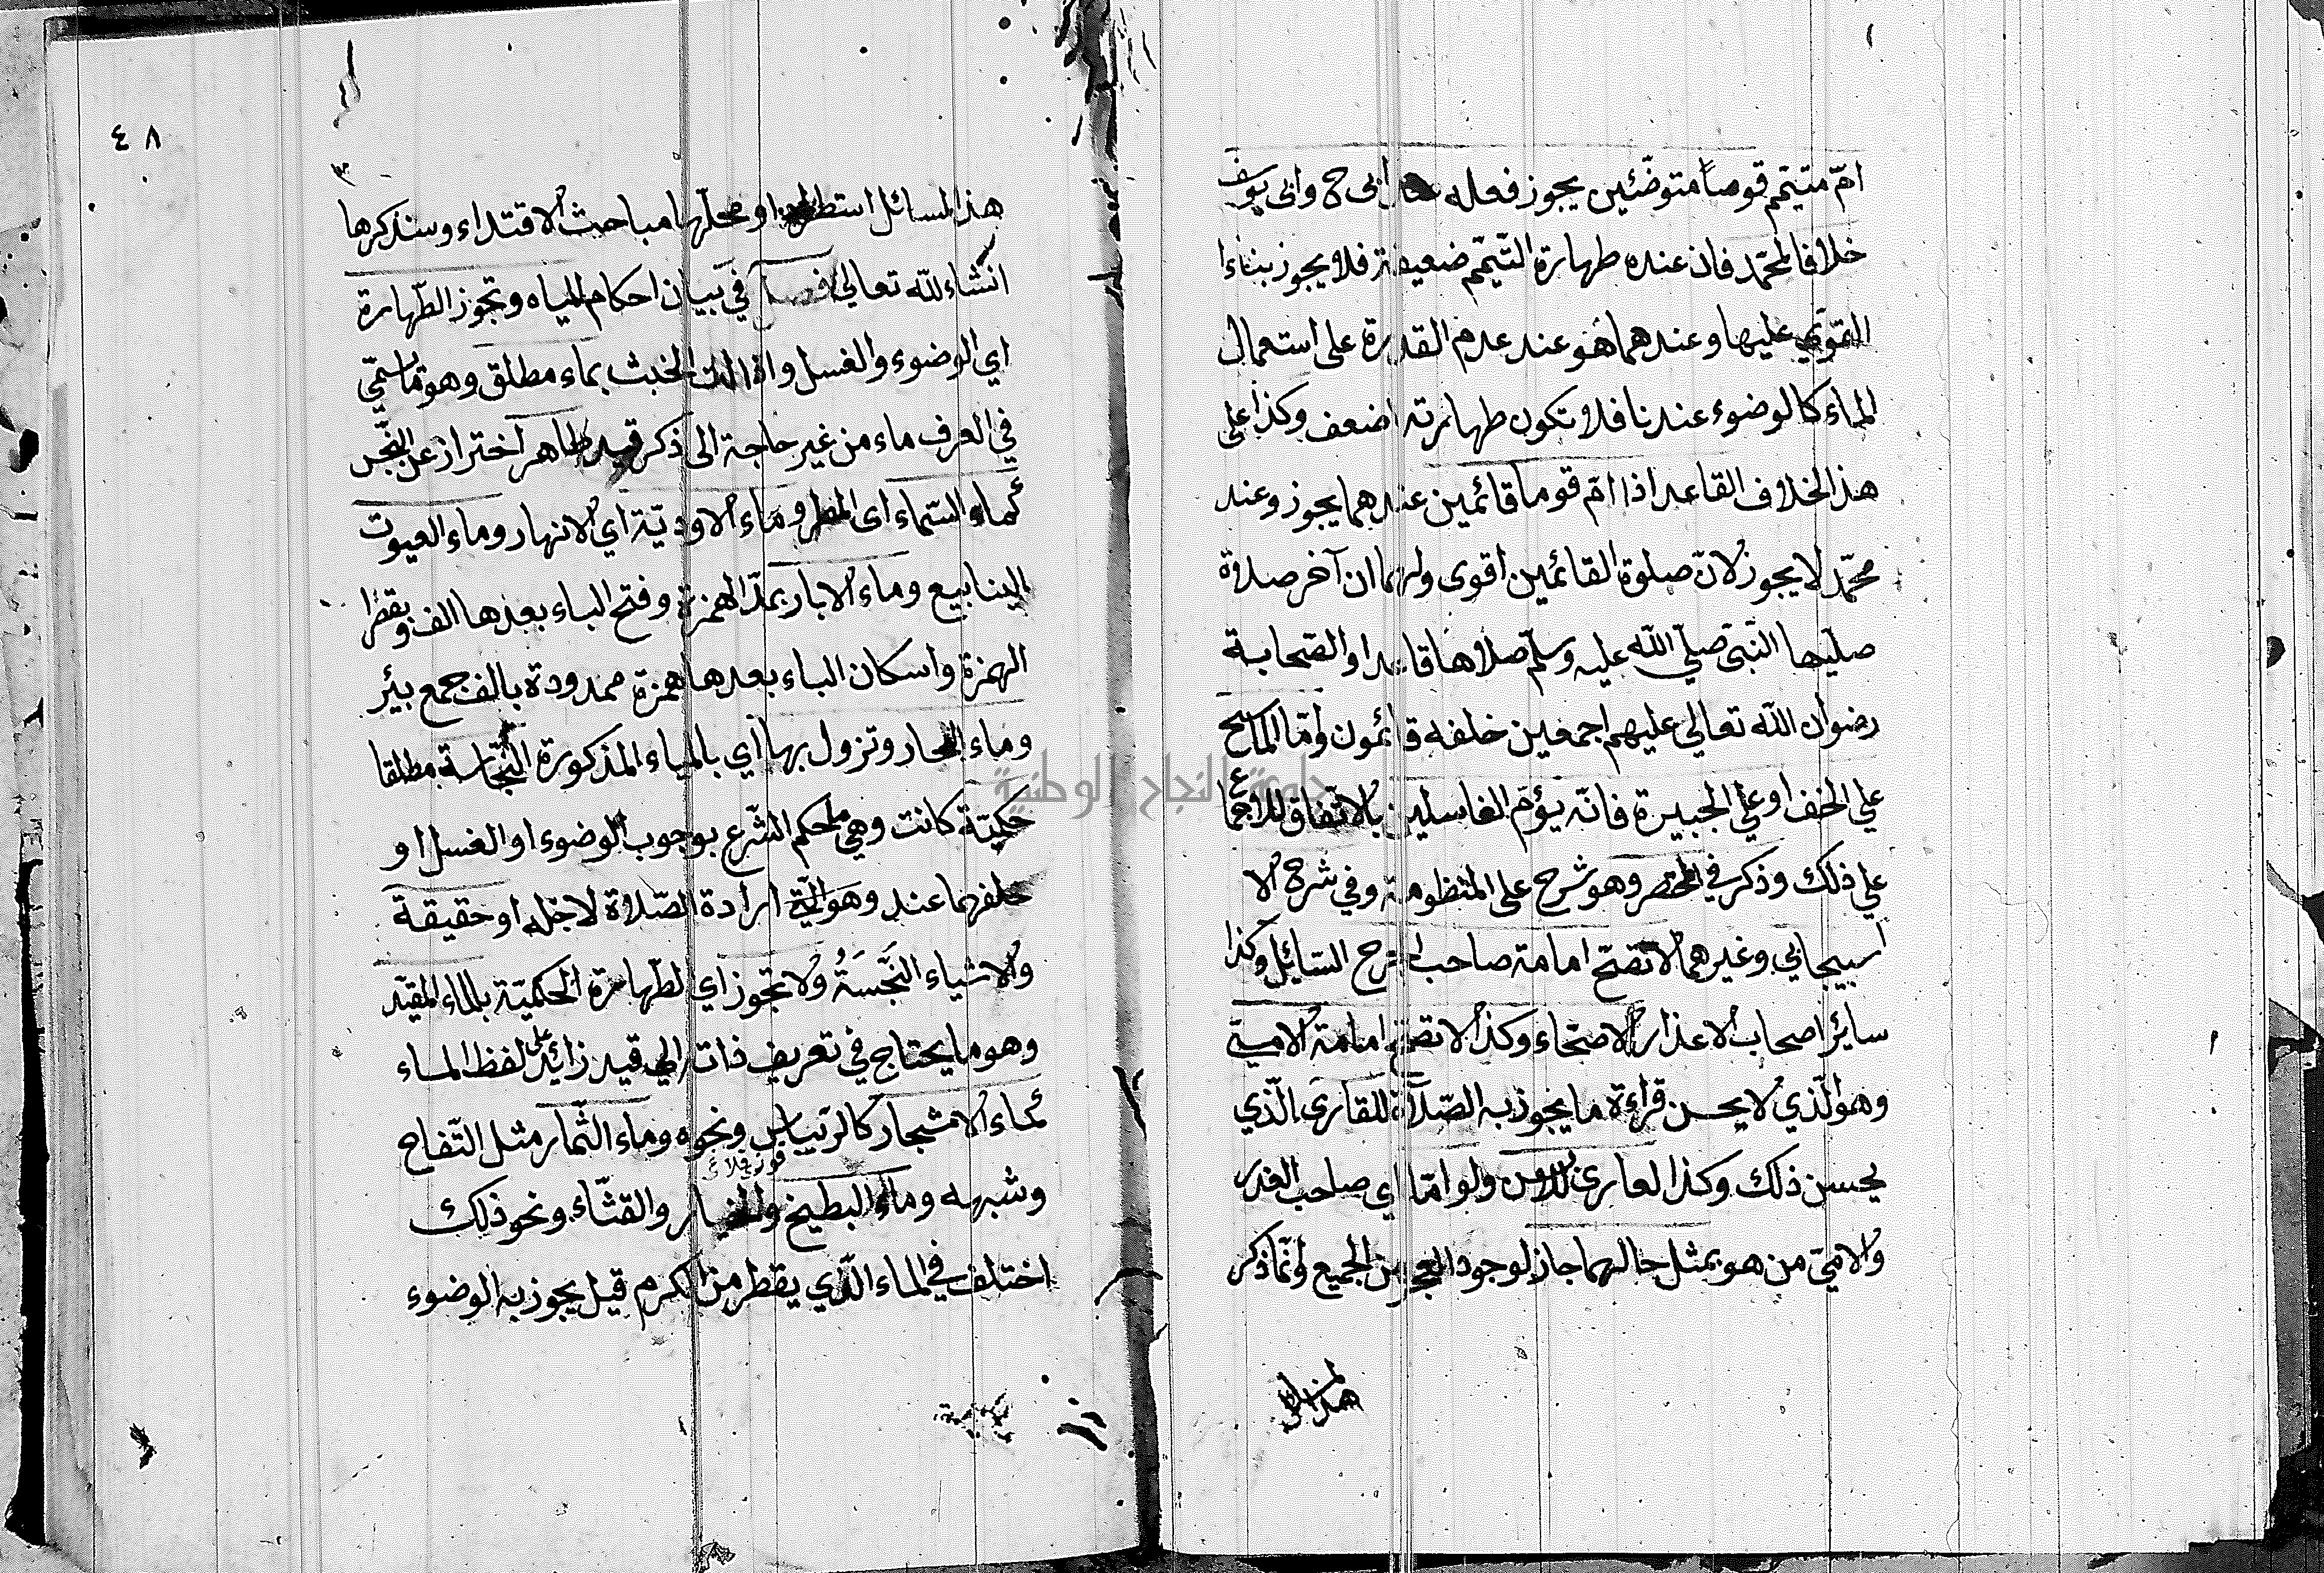 امّ متيمّم قوما متوضّئين يجوز فعله ابى ح وابى يوسف
خلافا لمحمّد فان عنده طهارة التّيمّم ضعيفة فلا يجوز بناء
القوي عليها وعندهما هو عند عدم القدرة على استعمال
الماء كالوضوء عندنا فلا تكون طهارته اضعف وكذا على
هذا الخلاف القاعد اذا امّ قوما قائمين عندهما يجوز وعند
محمّد لا يجوز لانّ صلوة القائمين اقوى ولهما ان آخر صلاة
صليها النّبى صلّي اللّه عليه وسلّم صلاها قاعدا والصّحابة
رضوان اللّه تعالي عليهم اجمعين خلفه قائمون وامّا الماسح
علي الخف او علي الجبيرة فانّه يؤمّ الغاسلين بالاتفاق للاجماع
علي ذلك وذكر في المختصر وهو شرح على المنظومة وفي شرح الا
سبيجابي وغيرهما لا تصّح امامة صاحب الجرح السّائل وكذا
سائر اصحاب الاعذار للاصحّاء وكذا لا تصّح امامة الامية
وهو الّذي لا يحسن قراءة ما يجوز به الصّلاة للقارئ الّذي
يحسن ذلك وكذا العارى للابس ولو امّا اي صاحب العذر
والامّي من هو بمثل حالهما جاز لوجود العجز من الجميع وانّما ذكر
هذا المسائل
٤٨
هذا المسائل استطرادا ومحلّها مباحث الاقتداء وسنذكرها
انشاء للّه تعالي فصل في بيان احكام المياه وتجوز الطّهارة
اي الوضوء والغسل وازالة الخبث بماء مطلق وهو ما يسمّى
في العرف ماء من غير حاجة الى ذكر قيد طاهر احتراز عن النّجس
كماء السّماء اى المطر وماء الاوديّة اي الانهار وماء العيون
الينابيع وماء الابار بمدّ الهمزة وفتح الباء بعدها الف وبقطع
الهمزة واسكان الباء بعدها همزة ممدودة بالف جمع بئر
وماء البحار وتزول بها اي بالمياء المذكورة النّجاسة مطلقا
حكميّة كانت وهي ما حكم الشّرع بوجوب الوضوء او الغسل او
خلفهما عند ارادة الصّلاة لاجله او حقيقة
والاشياء النَّجَسَةُ ولا تجوز اي الطّهارة الحكميّة بالماء المقيّد
وهو ما يحتاج في تعريف ذاته الي قيد زائد على لفظ الماء
كماء الاشجار كالرّيباس ونحوه وماء الثّمار مثل التّفاح
وشبهه وماء البطيخ والخيار والقثّاء ونحو ذلك
اختلف في الماء الّذي يقطر من الكرم قيل يجوز به الوضوء
جامعة النجاح الوطنية